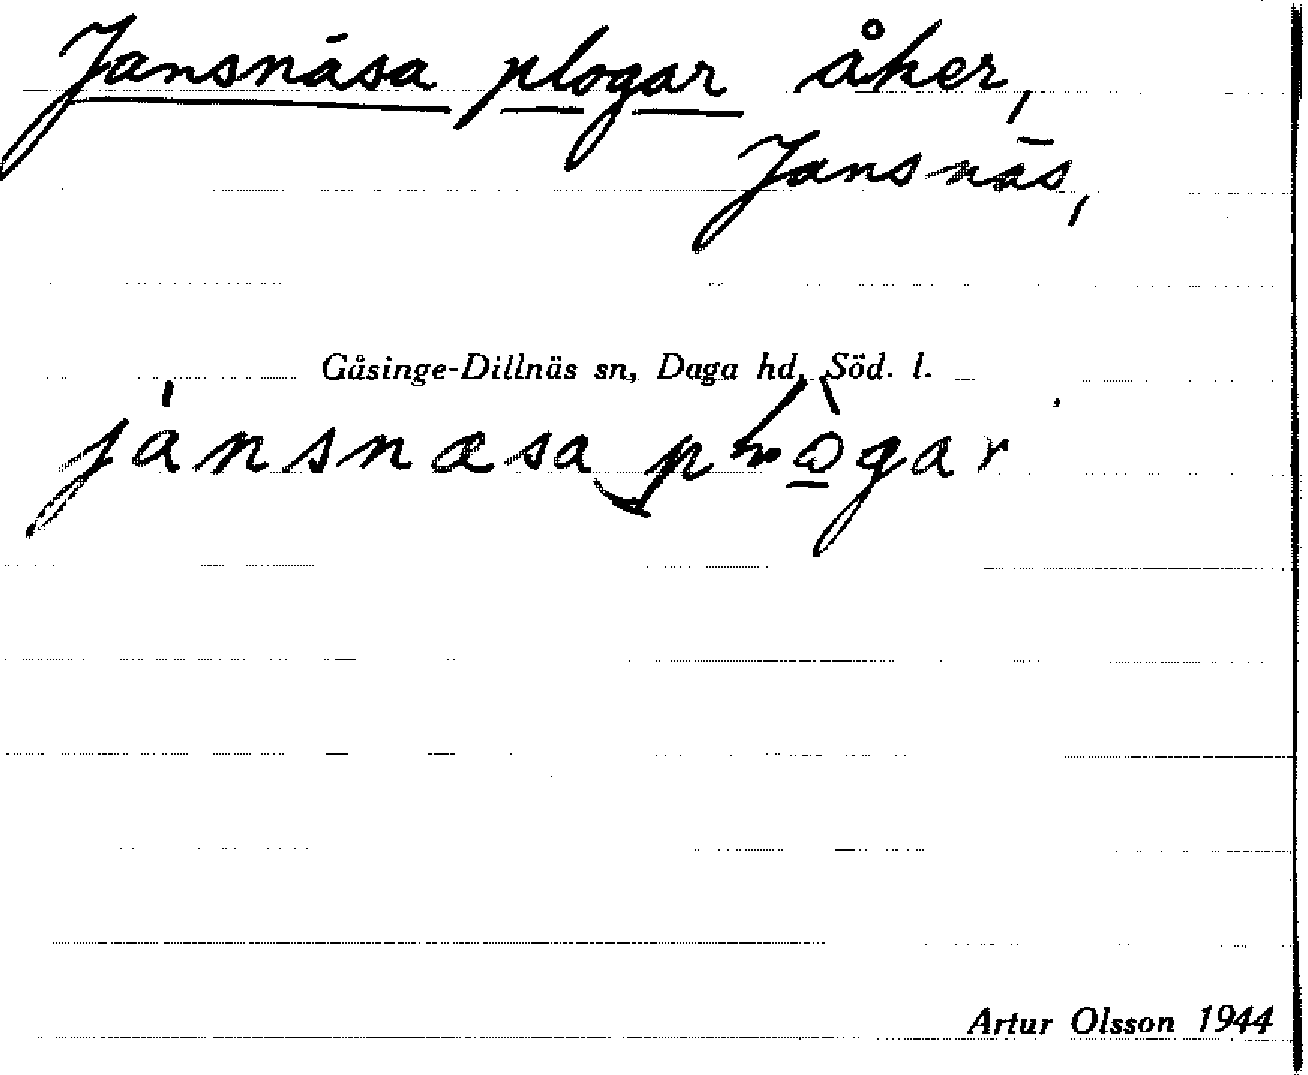 Jansnäsa plogar åker,
Jansnäs,
Gåsinge-Dillnäs sn, Daga hd, Söd. l.
jánsnæsa plògar
Artur Olsson 1944